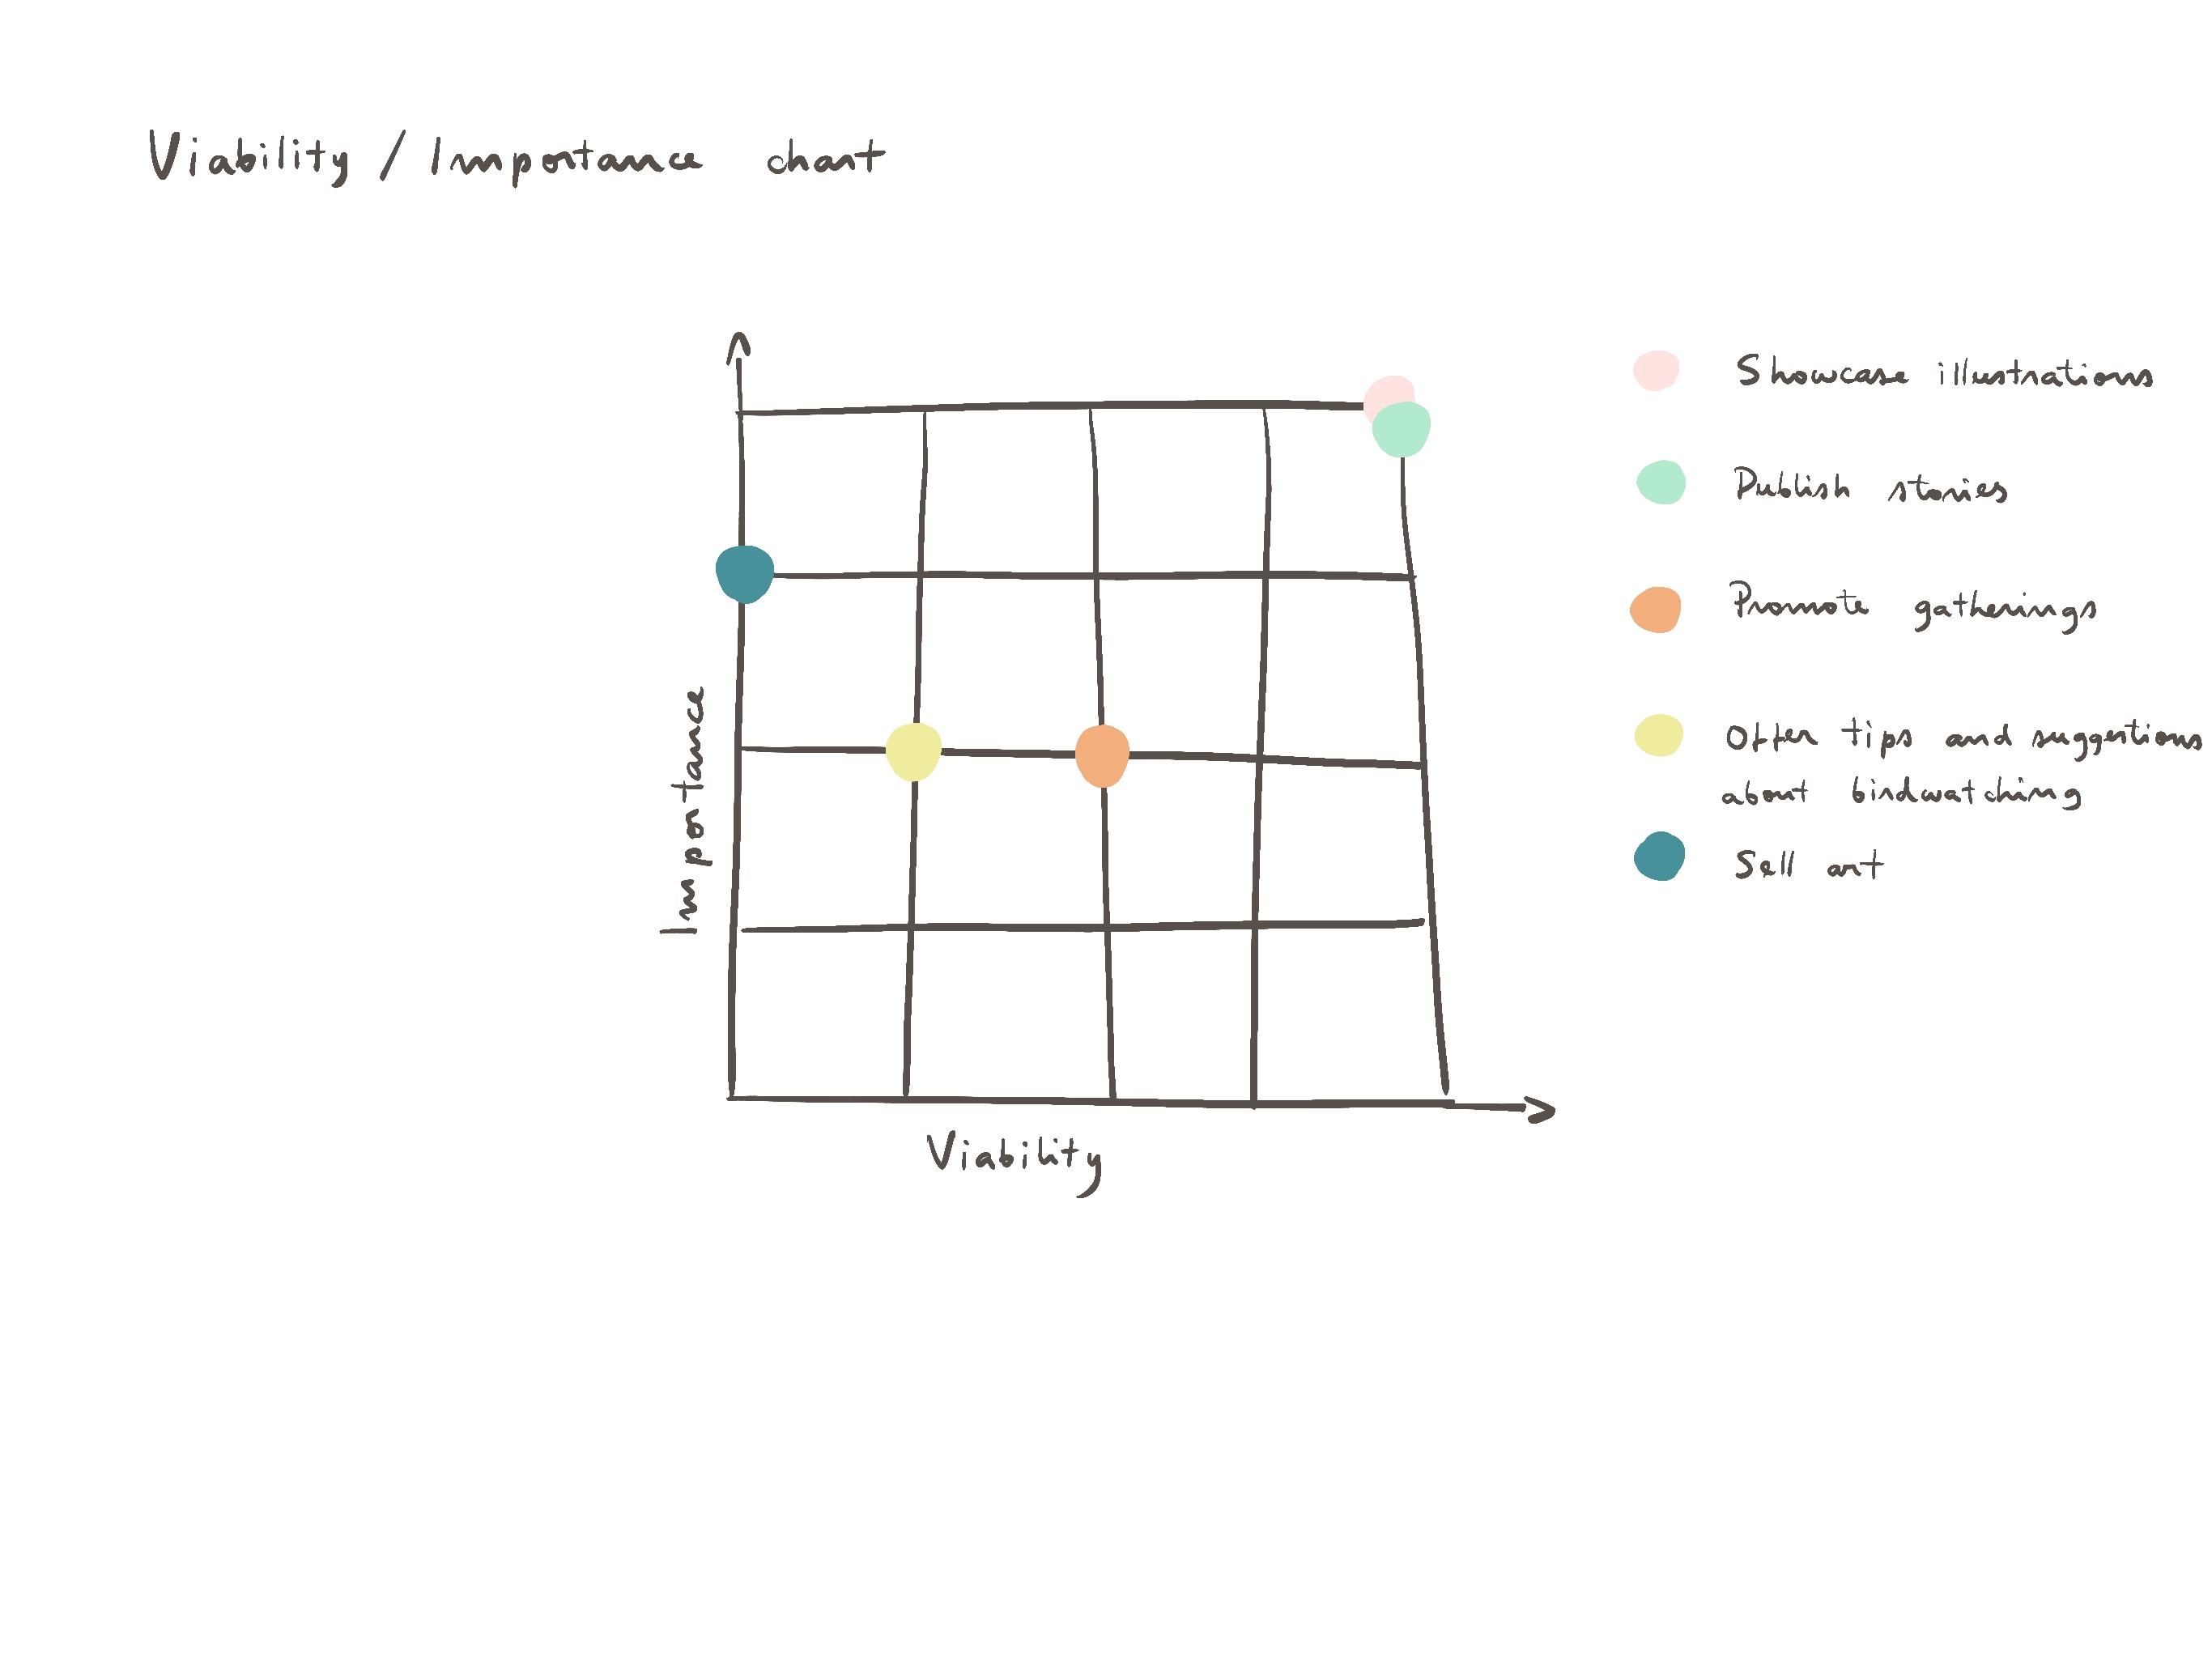 Viability / Importance chart
Importance
Viability
Showcase illustrations
Publish stories
Promote gatherings
Offer tips and suggestions
about birdwatching
Sell art